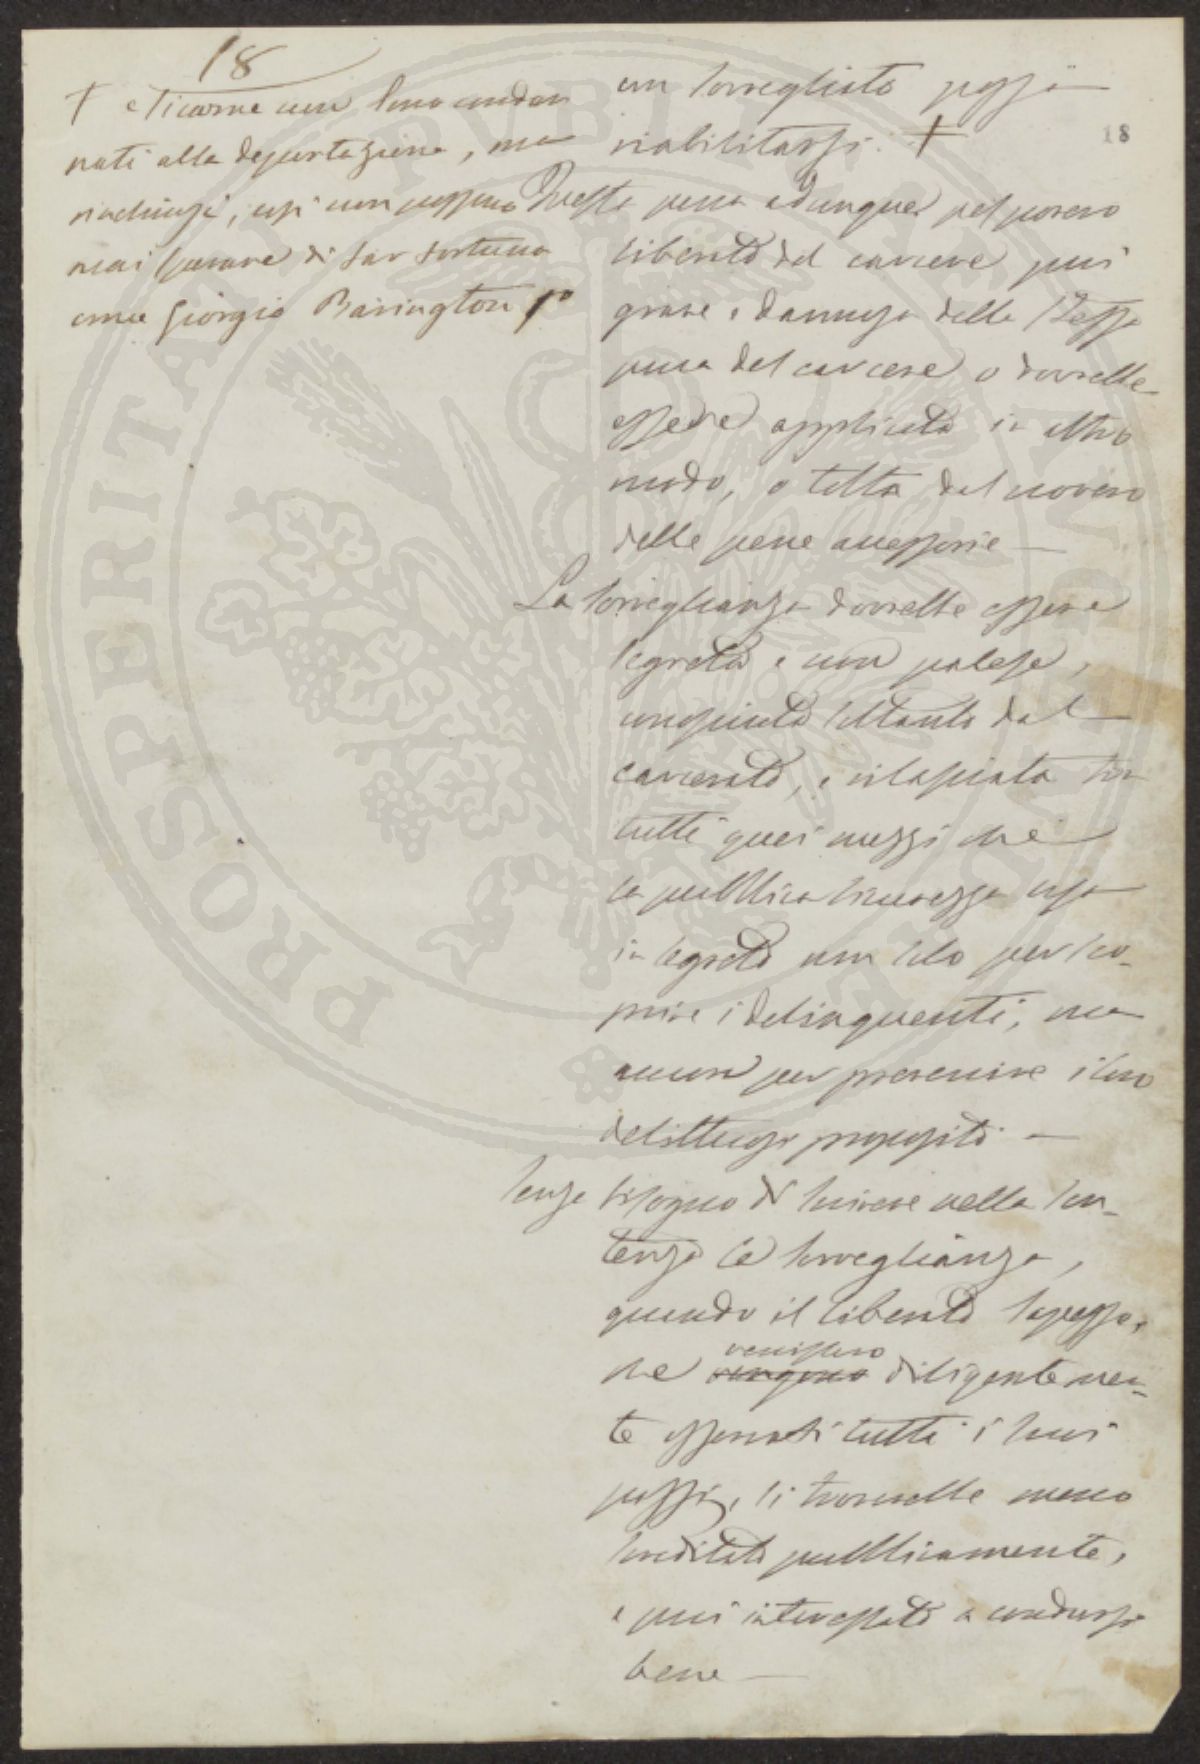 18
18
† e siccome non sono condan
nati alla deportazione, ma
rinchiusi, essi non possono
mai sperare di far fortuna
come Giorgio Barington
un sorvegliato possa
riabilitarsi. †
Questa pena adunque pel povero
liberato dal carcere più
grave e dannosa della stessa
pena del carcere o dovrebbe
essere applicata in altro
modo, o tolta dal novero
delle pene accessorie —
La sorveglianza dovrebbe essere
segreta e non palese,
conosciuta soltanto dal
carcerato, e rilasciata
tutti quei mezzi che
la pubblica sicurezza usa
in segreto non solo per sco-
prire i delinquenti, ma
ancora per prevenire i loro
delittuosi propositi —
Senza bisogno di scrivere nella sen-
tenza la sorveglianza,
quando il liberato sapesse,
che vengono venissero diligentemen-
te osservati tutti i suoi
passi, si troverebbe meno
screditato pubblicamente,
e più interessato a condursi
bene —
PROSPERITATI PVBLICAE AVGENDAE